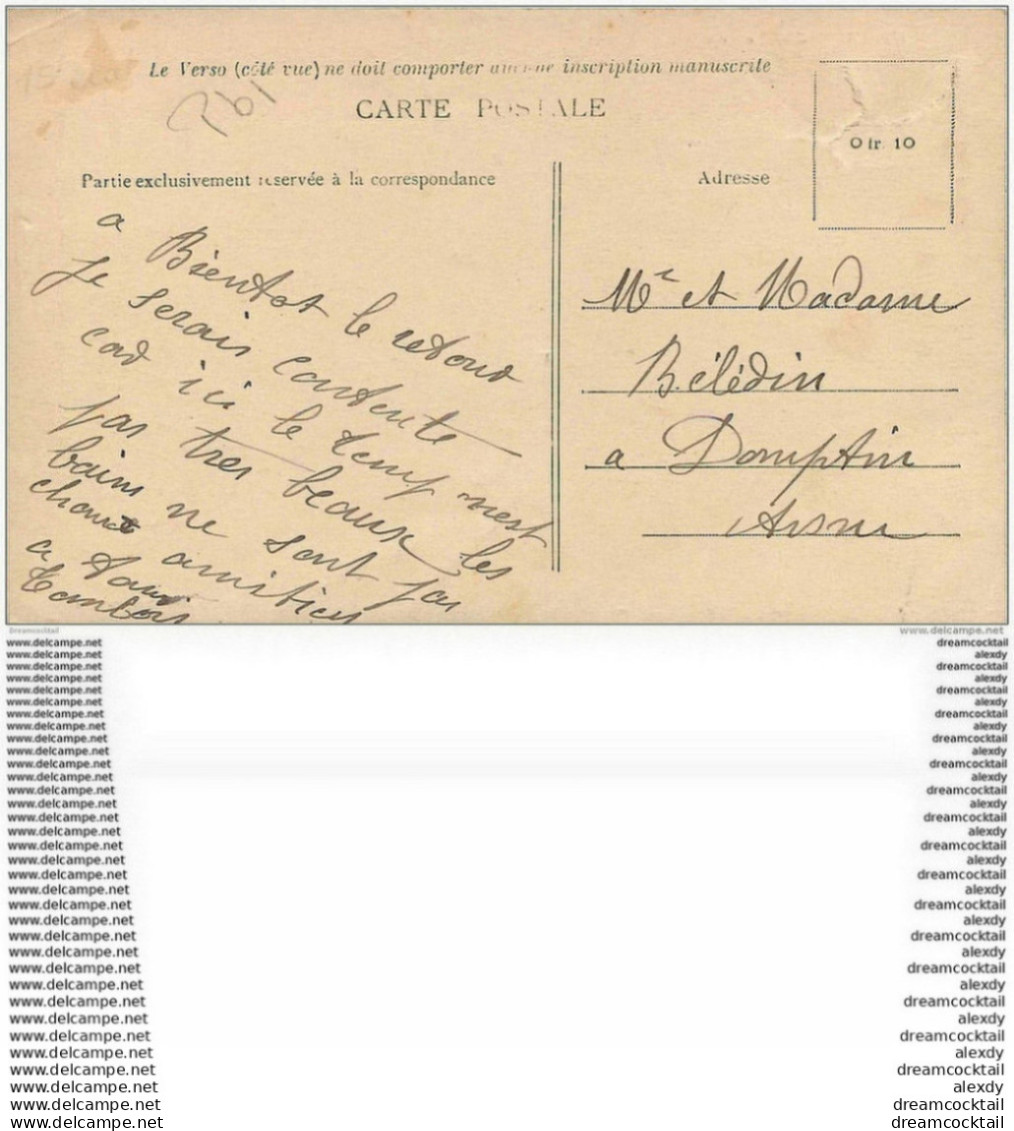 Le Verso (côté vue) ne doit comporter aucune inscription manuscrite
CARTE POSTALE
Partie exclusivement reservée à la correspondance
Adresse
0 fr. 10
a Bientot le retour
je serais contente
car ici le temp nest
pas tres beaux les
bains ne sont pas
chaud amitiés
a tous
Mr et Madame
Bélédin
a Domptin
Aisne
Dreamcocktail
www.delcampe.net
www.delcampe.net dreamcocktail
www.delcampe.net alexdy
www.delcampe.net dreamcocktail
www.delcampe.net alexdy
www.delcampe.net dreamcocktail
www.delcampe.net alexdy
www.delcampe.net dreamcocktail
www.delcampe.net alexdy
www.delcampe.net dreamcocktail
www.delcampe.net alexdy
www.delcampe.net dreamcocktail
www.delcampe.net alexdy
www.delcampe.net dreamcocktail
www.delcampe.net alexdy
www.delcampe.net dreamcocktail
www.delcampe.net alexdy
www.delcampe.net dreamcocktail
www.delcampe.net alexdy
www.delcampe.net dreamcocktail
www.delcampe.net alexdy
www.delcampe.net dreamcocktail
www.delcampe.net alexdy
www.delcampe.net dreamcocktail
www.delcampe.net alexdy
www.delcampe.net dreamcocktail
www.delcampe.net alexdy
www.delcampe.net dreamcocktail
www.delcampe.net alexdy
www.delcampe.net dreamcocktail
www.delcampe.net alexdy
www.delcampe.net dreamcocktail
www.delcampe.net alexdy
www.delcampe.net dreamcocktail
www.delcampe.net dreamcocktail